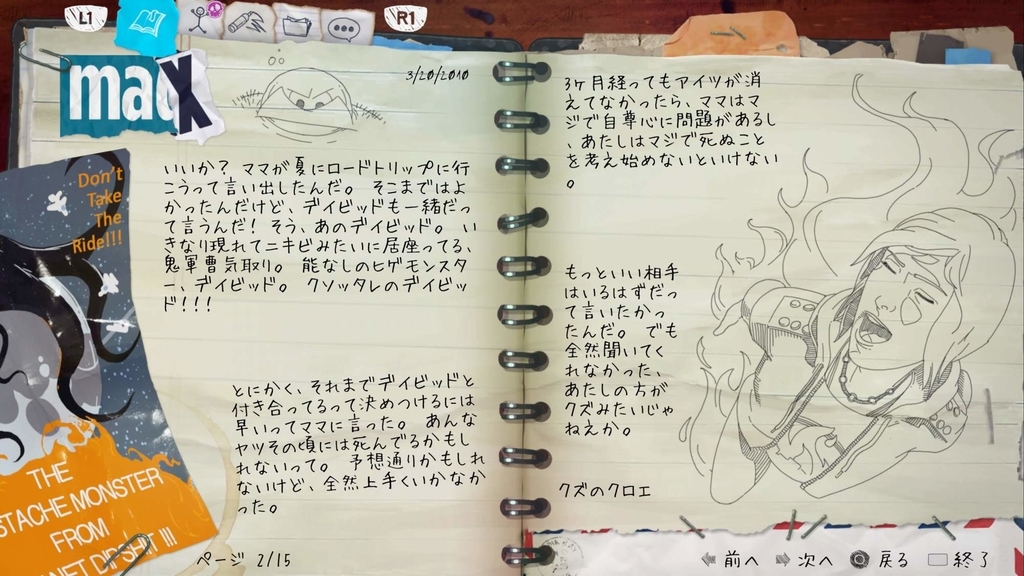 L1
R1
madX
3/20/2010
いいか? ママが夏にロードトリップに行
こうって言い出したんだ。 そこまではよ
かったんだけど、デイビッドも一緒だっ
て言うんだ! そう、あのデイビッド。 い
きなり現れてニキビみたいに居座ってる、
鬼軍曹気取り。 能なしのヒゲモンスタ
ー、デイビッド。 クソッタレのデイビッ
ド!!!
とにかく、それまでデイビッドと
付き合ってるって決めつけるには
早いってママに言った。 あんな
ヤツその頃には死んでるかもし
れないって。 予想通りかもしれ
ないけど、全然上手くいかなか
った。
Don't
Take
The
Ride!!!
THE
STACHE MONSTER
FROM
NET DIPSHIT III
ページ 2/15
3ヶ月経ってもアイツが消
えてなかったら、ママはマ
ジで自尊心に問題があるし
、あたしはマジで死ぬこと
を考え始めないといけない
。
もっといい相手
はいるはずだっ
て言いたかっ
たんだ。 でも
全然聞いてく
れなかった、
あたしの方が
クズみたいじゃ
ねえか。
クズのクロエ
前へ 次へ 戻る 終了